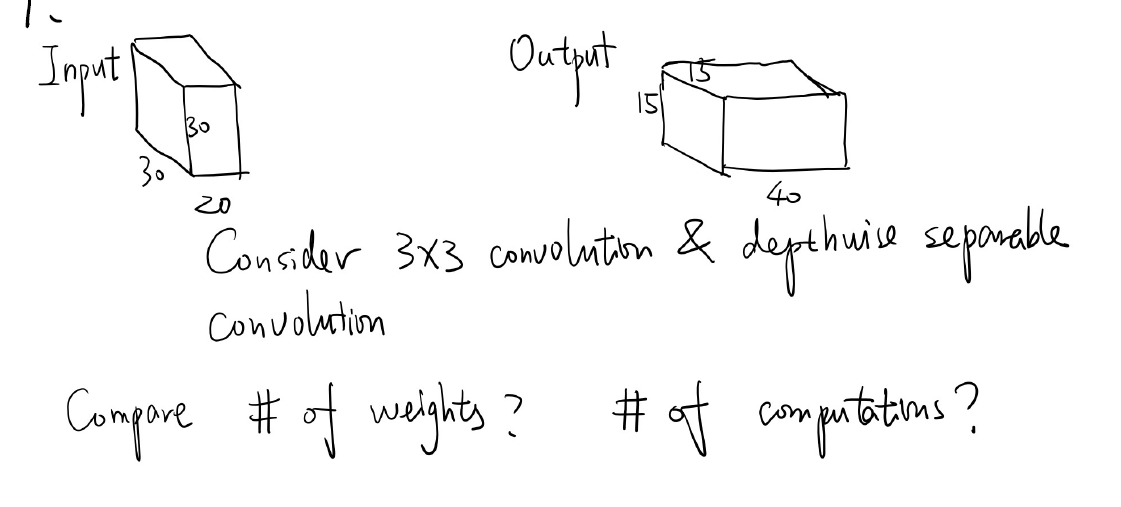 1.
Input
Output
15
15
30
30
20
40
Consider 3x3 convolution & depthwise separable
convolution
Compare # of weights? # of computations?